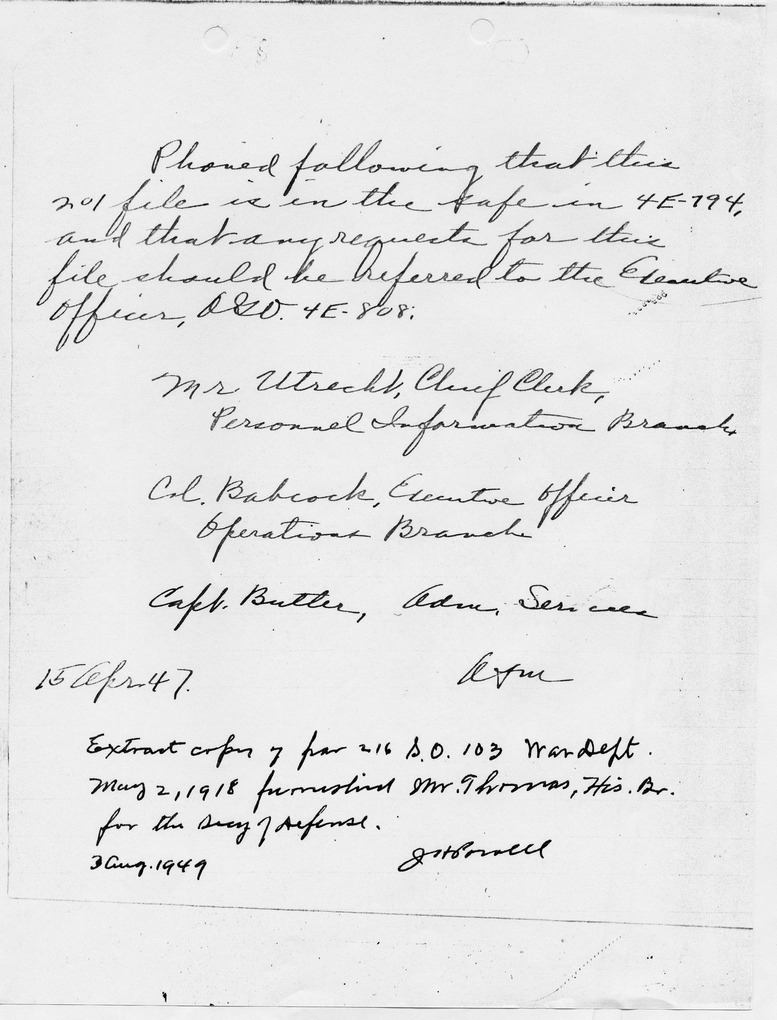 Phoned following that this
201 file is in the safe in 4E-794,
and that any requests for this
file should be referred to the Executive
Officer, AGO. 4E-808.
Mr Utrecht, Chief Clerk,
Personnel Information Branch
Col. Babcock, Executive Officer
Operations Branch
Capt. Butler, Adm. Services
15 Apr. 47.
Extract copy of par 216 S.O. 103 War Dept.
May 2, 1918 furnished Mr. Thomas, His. Br.
for the Secy of Defense.
3 Aug. 1949